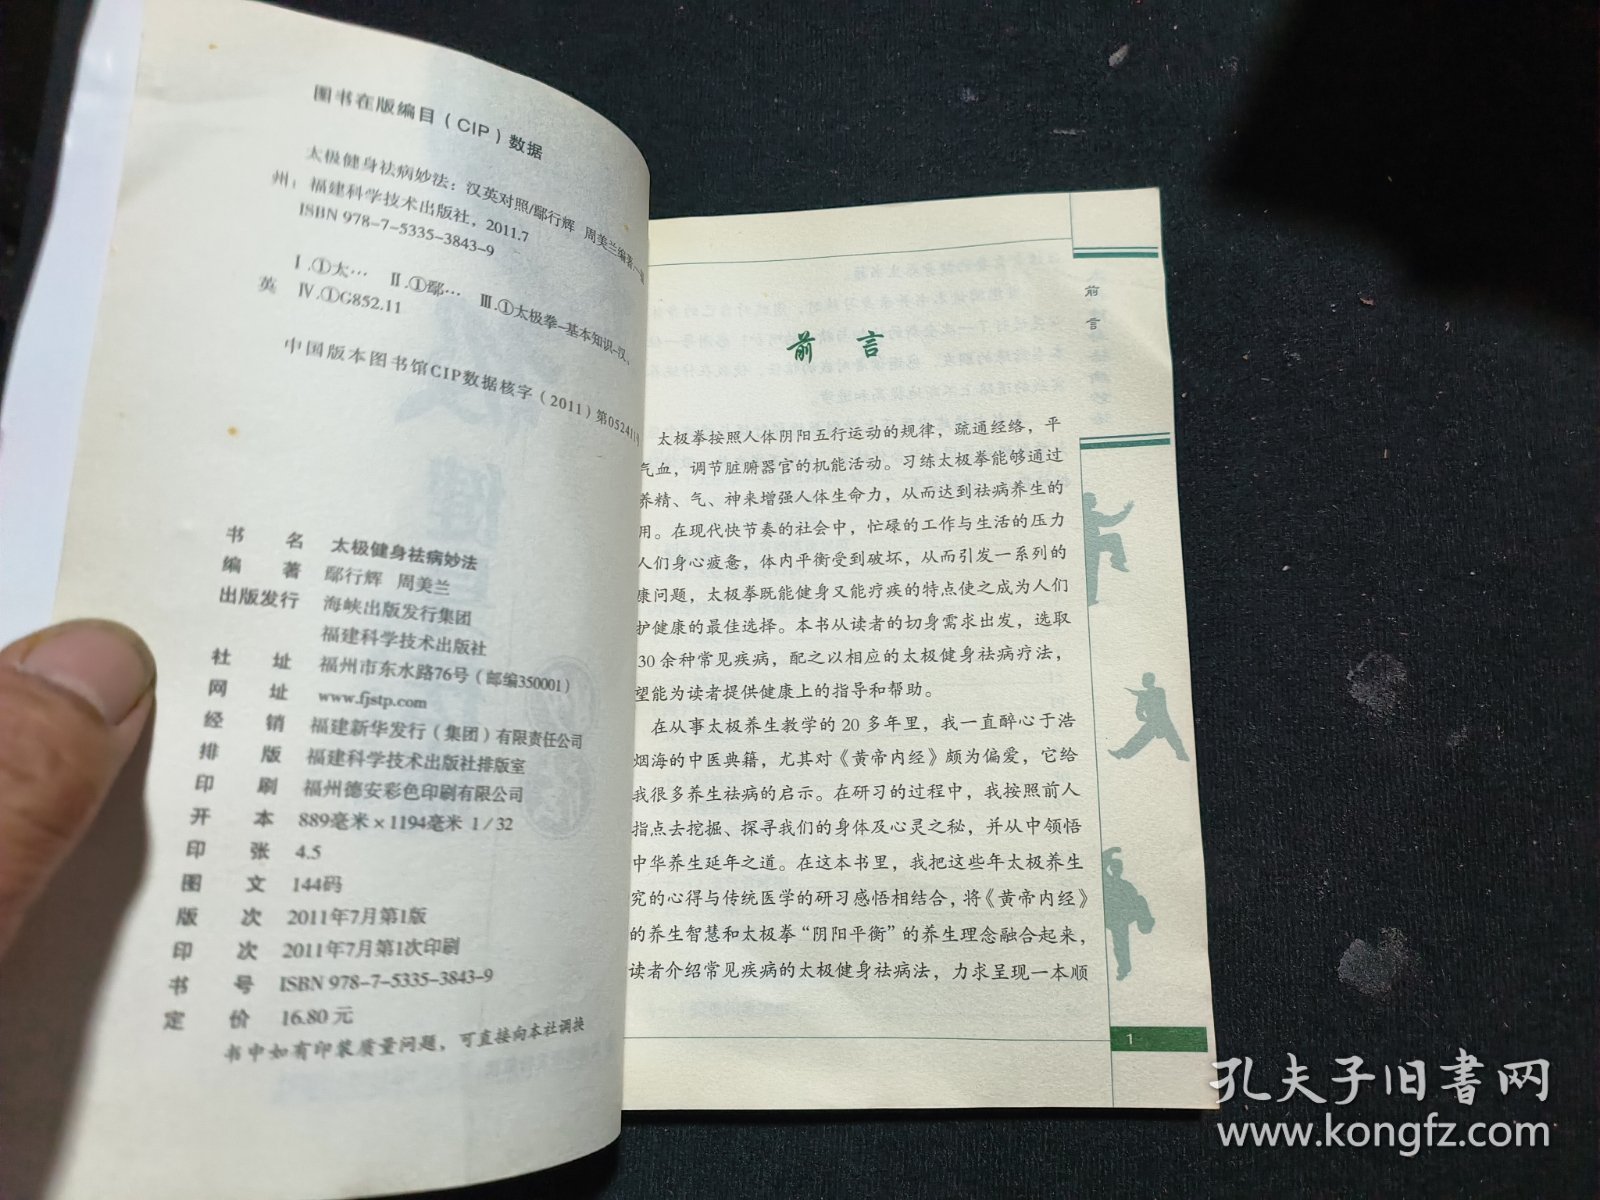 图书在版编目(CIP)数据
太极健身祛病妙法:汉英对照/鄢行辉 周美兰编著.—福
州:福建科学技术出版社,2011.7
ISBN 978-7-5335-3843-9
Ⅰ.①太… Ⅱ.①鄢… Ⅲ.①太极拳-基本知识-汉、
英 Ⅳ.①G852.11
中国版本图书馆CIP数据核字(2011)第052411号
书 名 太极健身祛病妙法
编 著 鄢行辉 周美兰
出版发行 海峡出版发行集团
福建科学技术出版社
社 址 福州市东水路76号(邮编350001)
网 址 www.fjstp.com
经 销 福建新华发行(集团)有限责任公司
排 版 福建科学技术出版社排版室
印 刷 福州德安彩色印刷有限公司
开 本 889毫米×1194毫米 1/32
印 张 4.5
图 文 144码
版 次 2011年7月第1版
印 次 2011年7月第1次印刷
书 号 ISBN 978-7-5335-3843-9
定 价 16.80元
书中如有印装质量问题,可直接向本社调换
前言
前 言
太极拳按照人体阴阳五行运动的规律,疏通经络,平
气血,调节脏腑器官的机能活动。习练太极拳能够通过
养精、气、神来增强人体生命力,从而达到祛病养生的
用。在现代快节奏的社会中,忙碌的工作与生活的压力
人们身心疲惫,体内平衡受到破坏,从而引发一系列的
康问题,太极拳既能健身又能疗疾的特点使之成为人们
护健康的最佳选择。本书从读者的切身需求出发,选取
30余种常见疾病,配之以相应的太极健身祛病疗法,
望能为读者提供健康上的指导和帮助。
在从事太极养生教学的20多年里,我一直醉心于浩
烟海的中医典籍,尤其对《黄帝内经》颇为偏爱,它给
我很多养生祛病的启示。在研习的过程中,我按照前人
指点去挖掘、探寻我们的身体及心灵之秘,并从中领悟
中华养生延年之道。在这本书里,我把这些年太极养生
究的心得与传统医学的研习感悟相结合,将《黄帝内经》
的养生智慧和太极拳“阴阳平衡”的养生理念融合起来,
读者介绍常见疾病的太极健身祛病法,力求呈现一本顺
1
孔夫子旧书网
www.kongfz.com